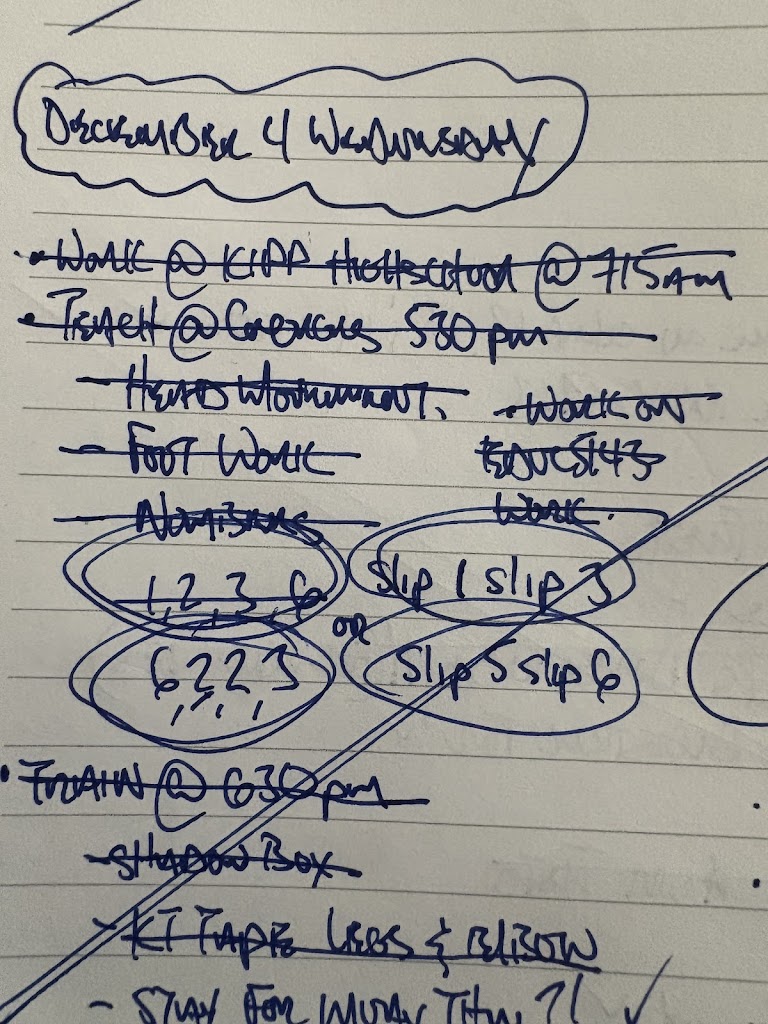 DECEMBER 4 WEDNUSDAY
• WORK @ KIPP @ 715AM
• TEACH @ 530 pm
- HEAD MOVEMENT. - WORK ON
- FOOT WORK
- NUMBERS WORK.
1, 2, 3 6 Slip 1 Slip 3
OR
6, 2, 2, 3 Slip 5 Slip 6
• TRAIN @ 630 pm
- SHADOW BOX
- KT TAPE LEGS & ELBOW
- STAY FOR MUAY THAI ?! ✓